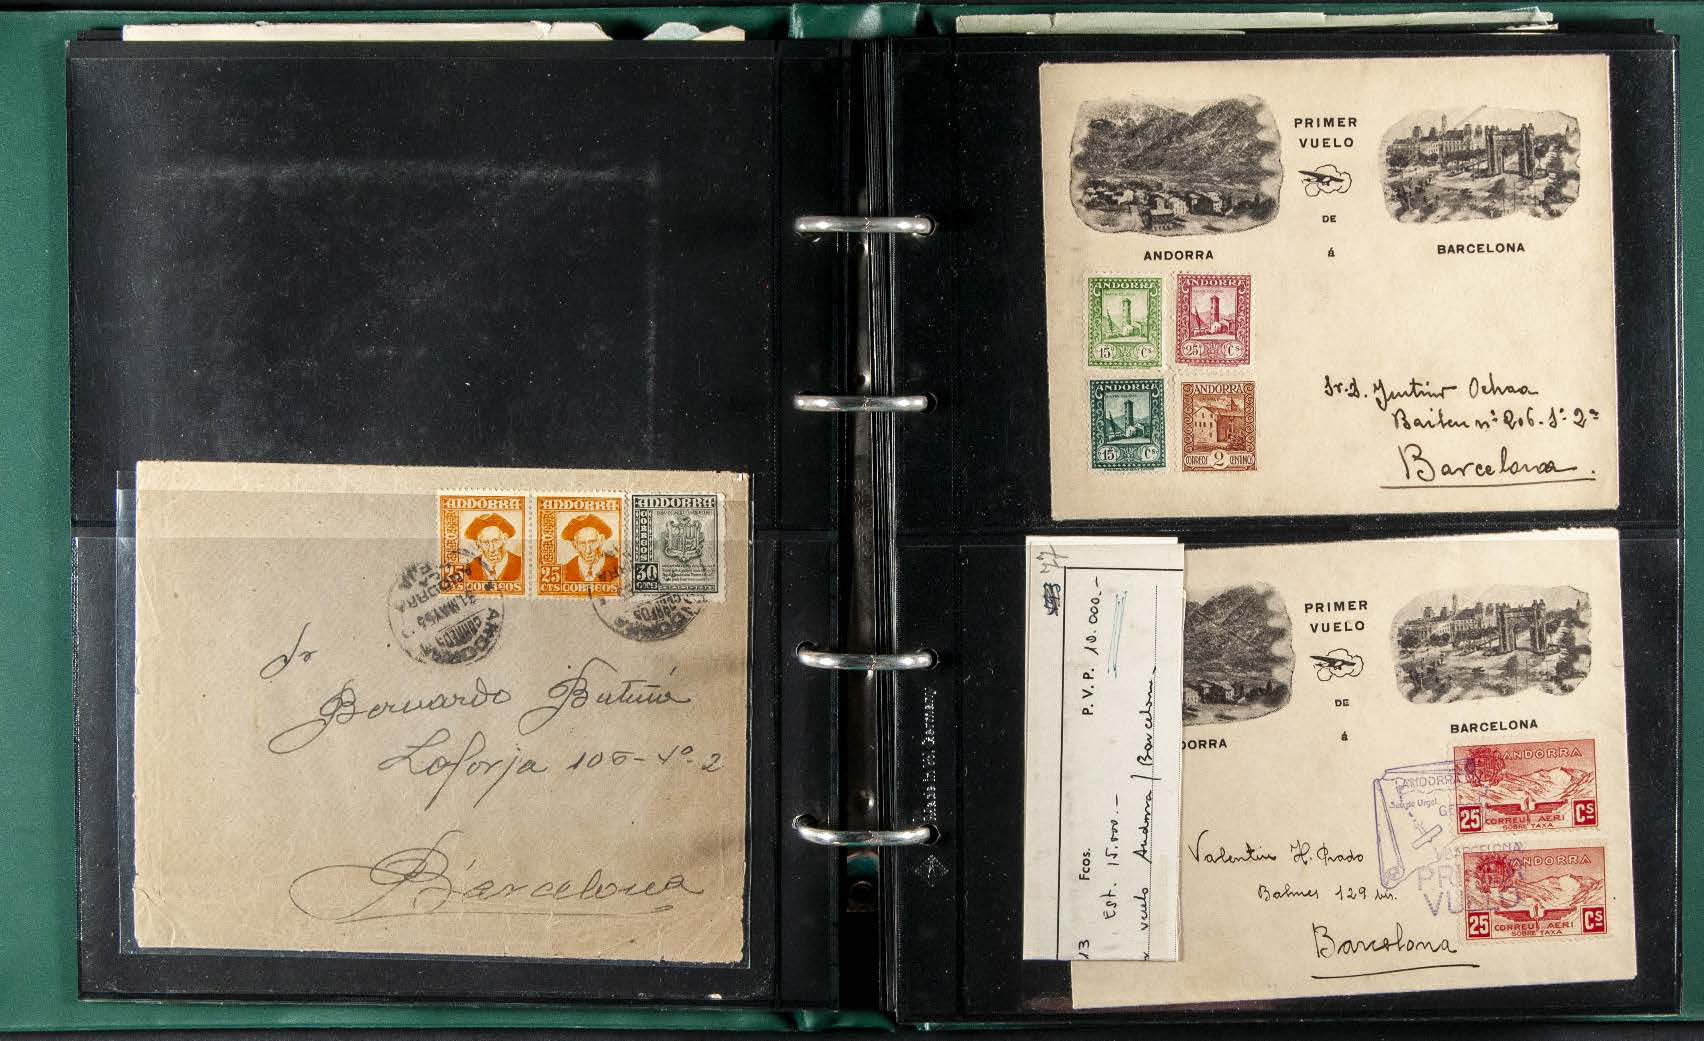 ANDORRA
25
CTS CORREOS
ANDORRA
25
CTS CORREOS
ANDORRA
CORREOS
30
CTMS
ANDORRA
CORREOS
Sr
Bernardo Butiñá
Laforja 105-4º-2
Barcelona
PRIMER
VUELO
DE
á
ANDORRA
BARCELONA
ANDORRA
15 Cs
ANDORRA
25 Cs
ANDORRA
15 Cs
ANDORRA
CORREOS 2 CENTIMOS
Sr. D. Justino Ochoa
Bailen nº 206-1º-2ª
Barcelona.
Made in W. Germany
77
P.V.P. 10.000.-
Fcos.
Est. 15.000.-
13
vuelo Andorra / Barcelona
PRIMER
VUELO
DE
á
DORRA
BARCELONA
ANDORRA
BARCELONA
PRIMER
VUELO
ANDORRA
25 CORREU AERI Cs
SOBRE TAXA
ANDORRA
25 CORREU AERI Cs
SOBRE TAXA
Valentin H. Prado
Balmes 129 bis.
Barcelona